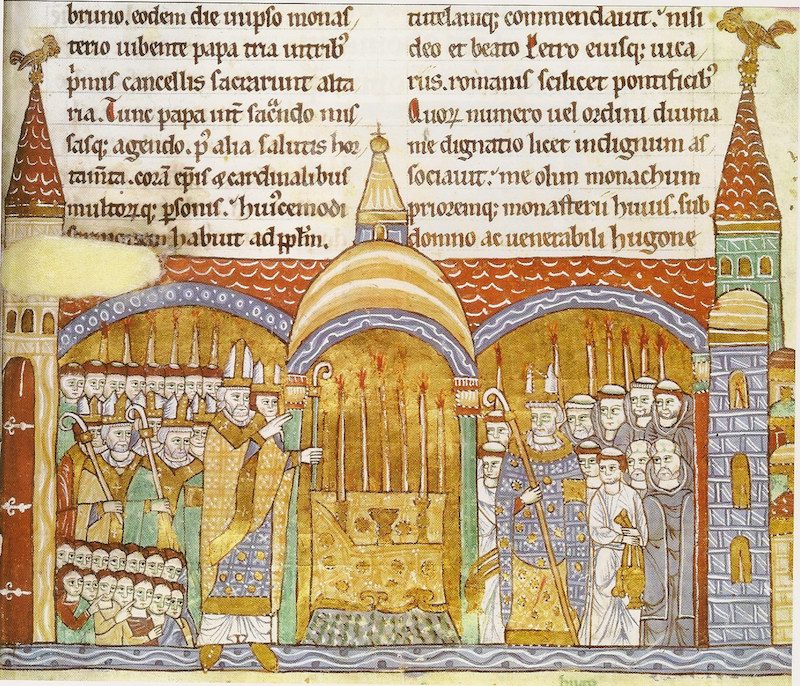 bruno. eodem die in ipso monas/
terio iubente papa tria in tribꝰ
p̄mis cancellis sacrarunt alta
ria. Tunc papa int̄ sac̄ndo mis
sasq; agendo. pꝰ alia salutis hor/
tam̄ta. corā ep̄is & cardinalibus
multoꝝq; p̄sonis. huicemodi
habuit ad pplm̄.
tutelamq; commendauit. nisi
deo et beato Petro eiusq; uica/
riis. romanis scilicet pontificibꝰ
Quoꝝ numero uel ordini diuina
me dignatio licet indignum as/
sociauit. me olim monachum
prioremq; monasterii huius. sub
domno ac uenerabili hugone